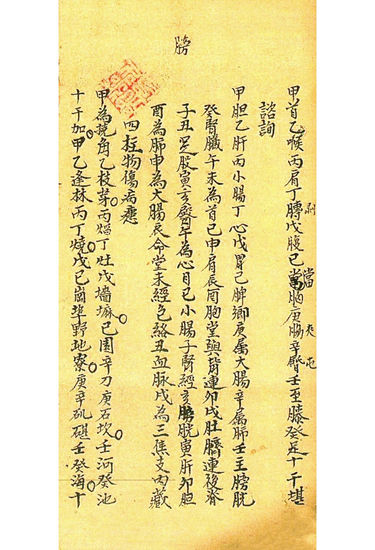 膀
甲首乙喉丙肩丁膊戊腹己當胸庚腸辛腎壬至膝癸足十干堪
諮詢
甲胆乙肝丙小腸丁心戊胃己脾鄉庚属大腸辛属肺壬主膀胱
癸腎臟午未為首巳申肩辰酉胸堂與背連卯戌肚臍連後脊
子丑足股寅亥午為心目巳小腸子腎經亥膀胱寅肝卯胆
酉為肺申為大腸辰命堂未經色絡丑血脉戌為三焦支內藏
四柱物傷病應
甲為角乙枝芽丙烟丁灶戊墻壁己園辛刀庚石坎壬河癸池
十干加甲乙逢林丙丁燒戊己崗埠野地寮庚辛磯碓壬癸海十